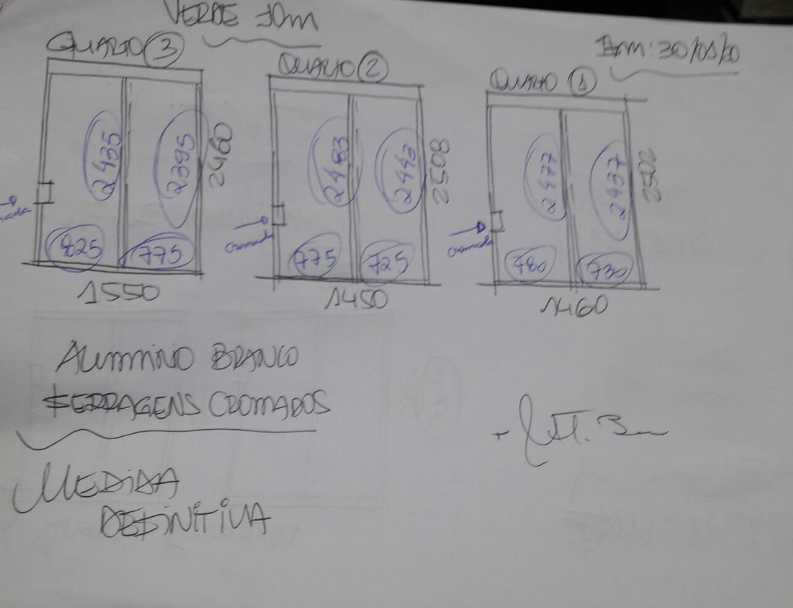 VERDE 10m
Em: 30/01/20
QUARTO 3
2435
2395
2460
825
775
1550
QUARTO 2
2483
2443
2508
Cromada
775
725
1450
QUARTO 1
2477
2437
2502
Cromada
780
730
1460
ALUMINIO BRANCO
FERRAGENS CROMADOS
MEDIDA
DEFINITIVA